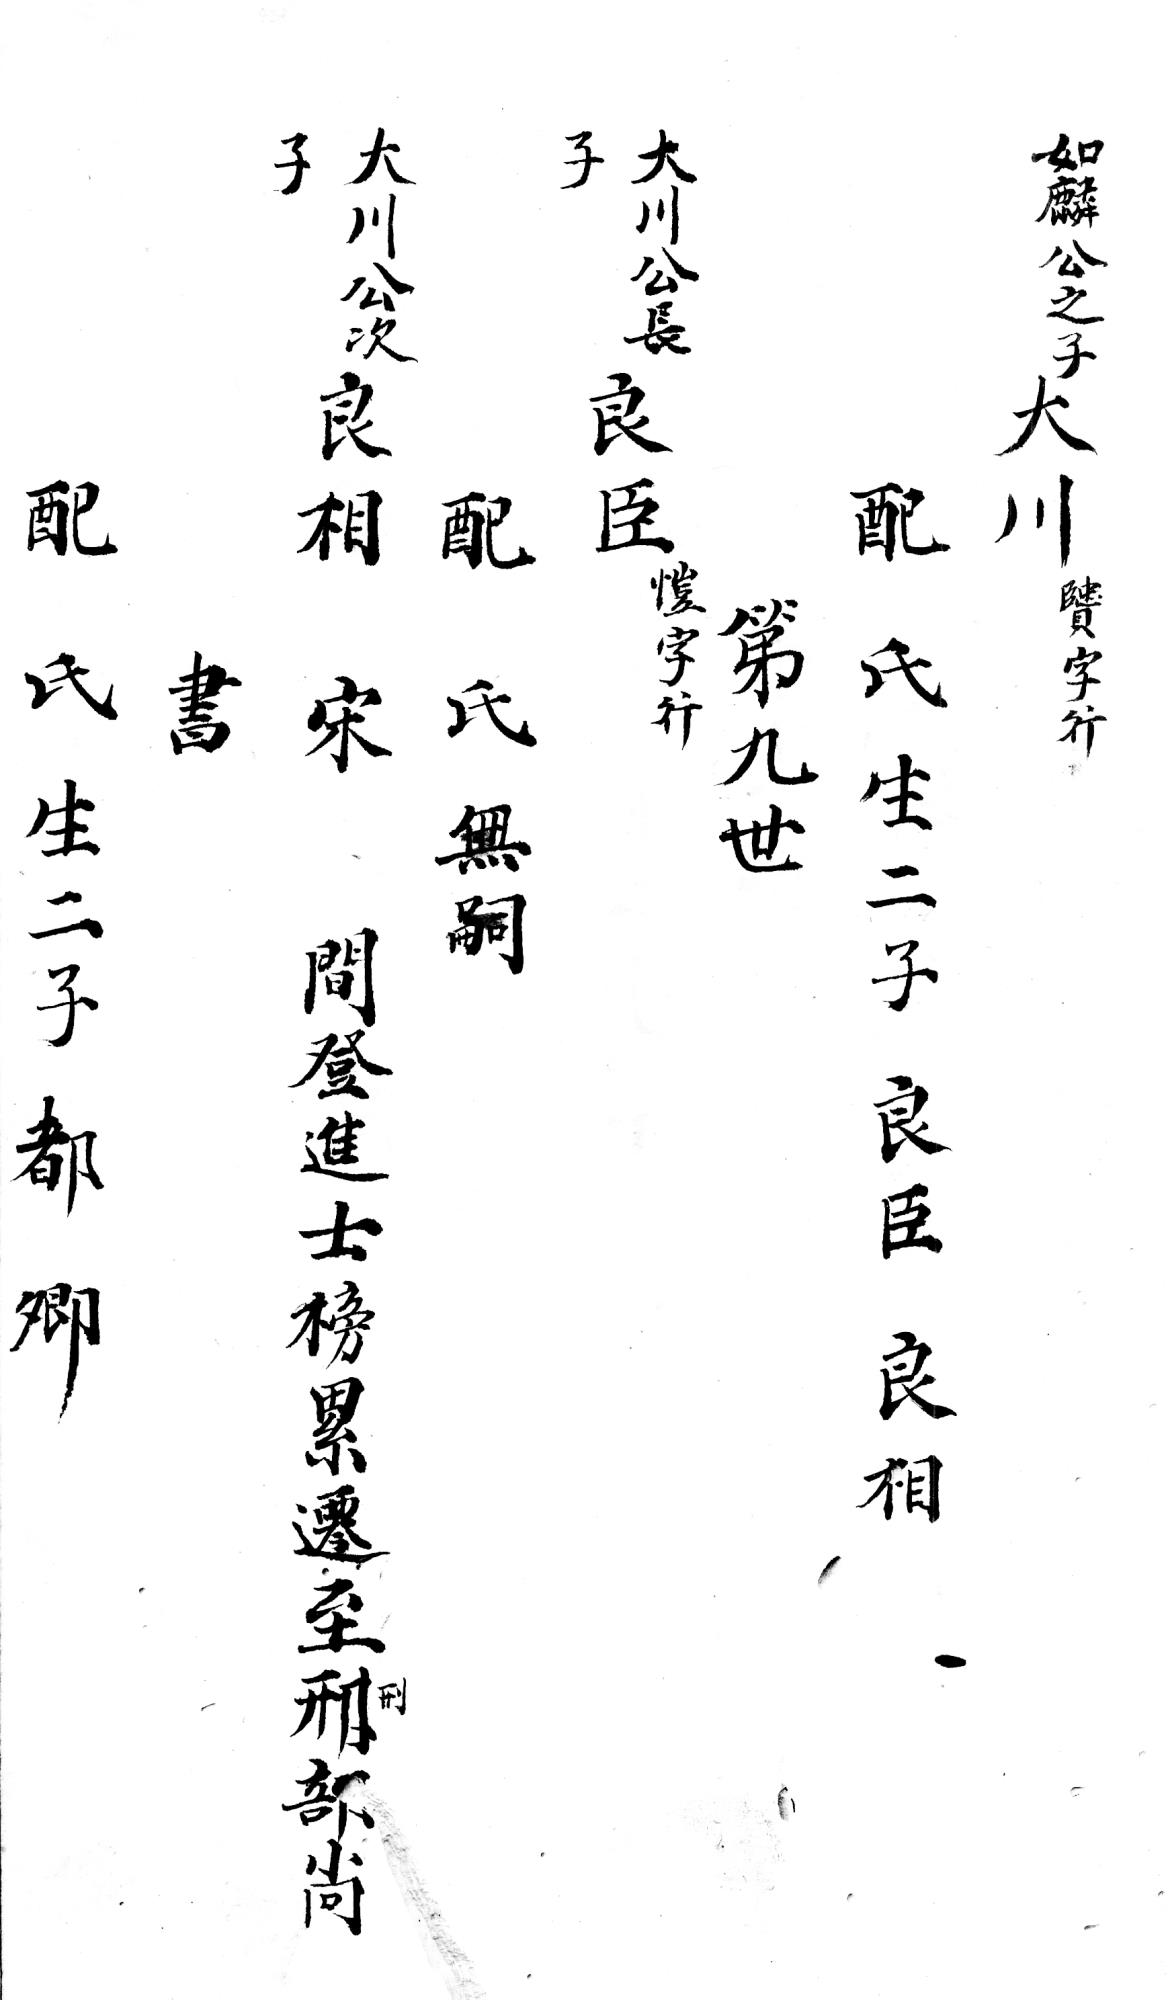 如麟公之子大川 字行
配　氏生二子　良臣　良相
第九世
大川公長子良臣 愷字行
配　氏無嗣
大川公次子良相　宋　間登進士榜累遷至刑部尚
刑
書
配　氏生二子　都　卿